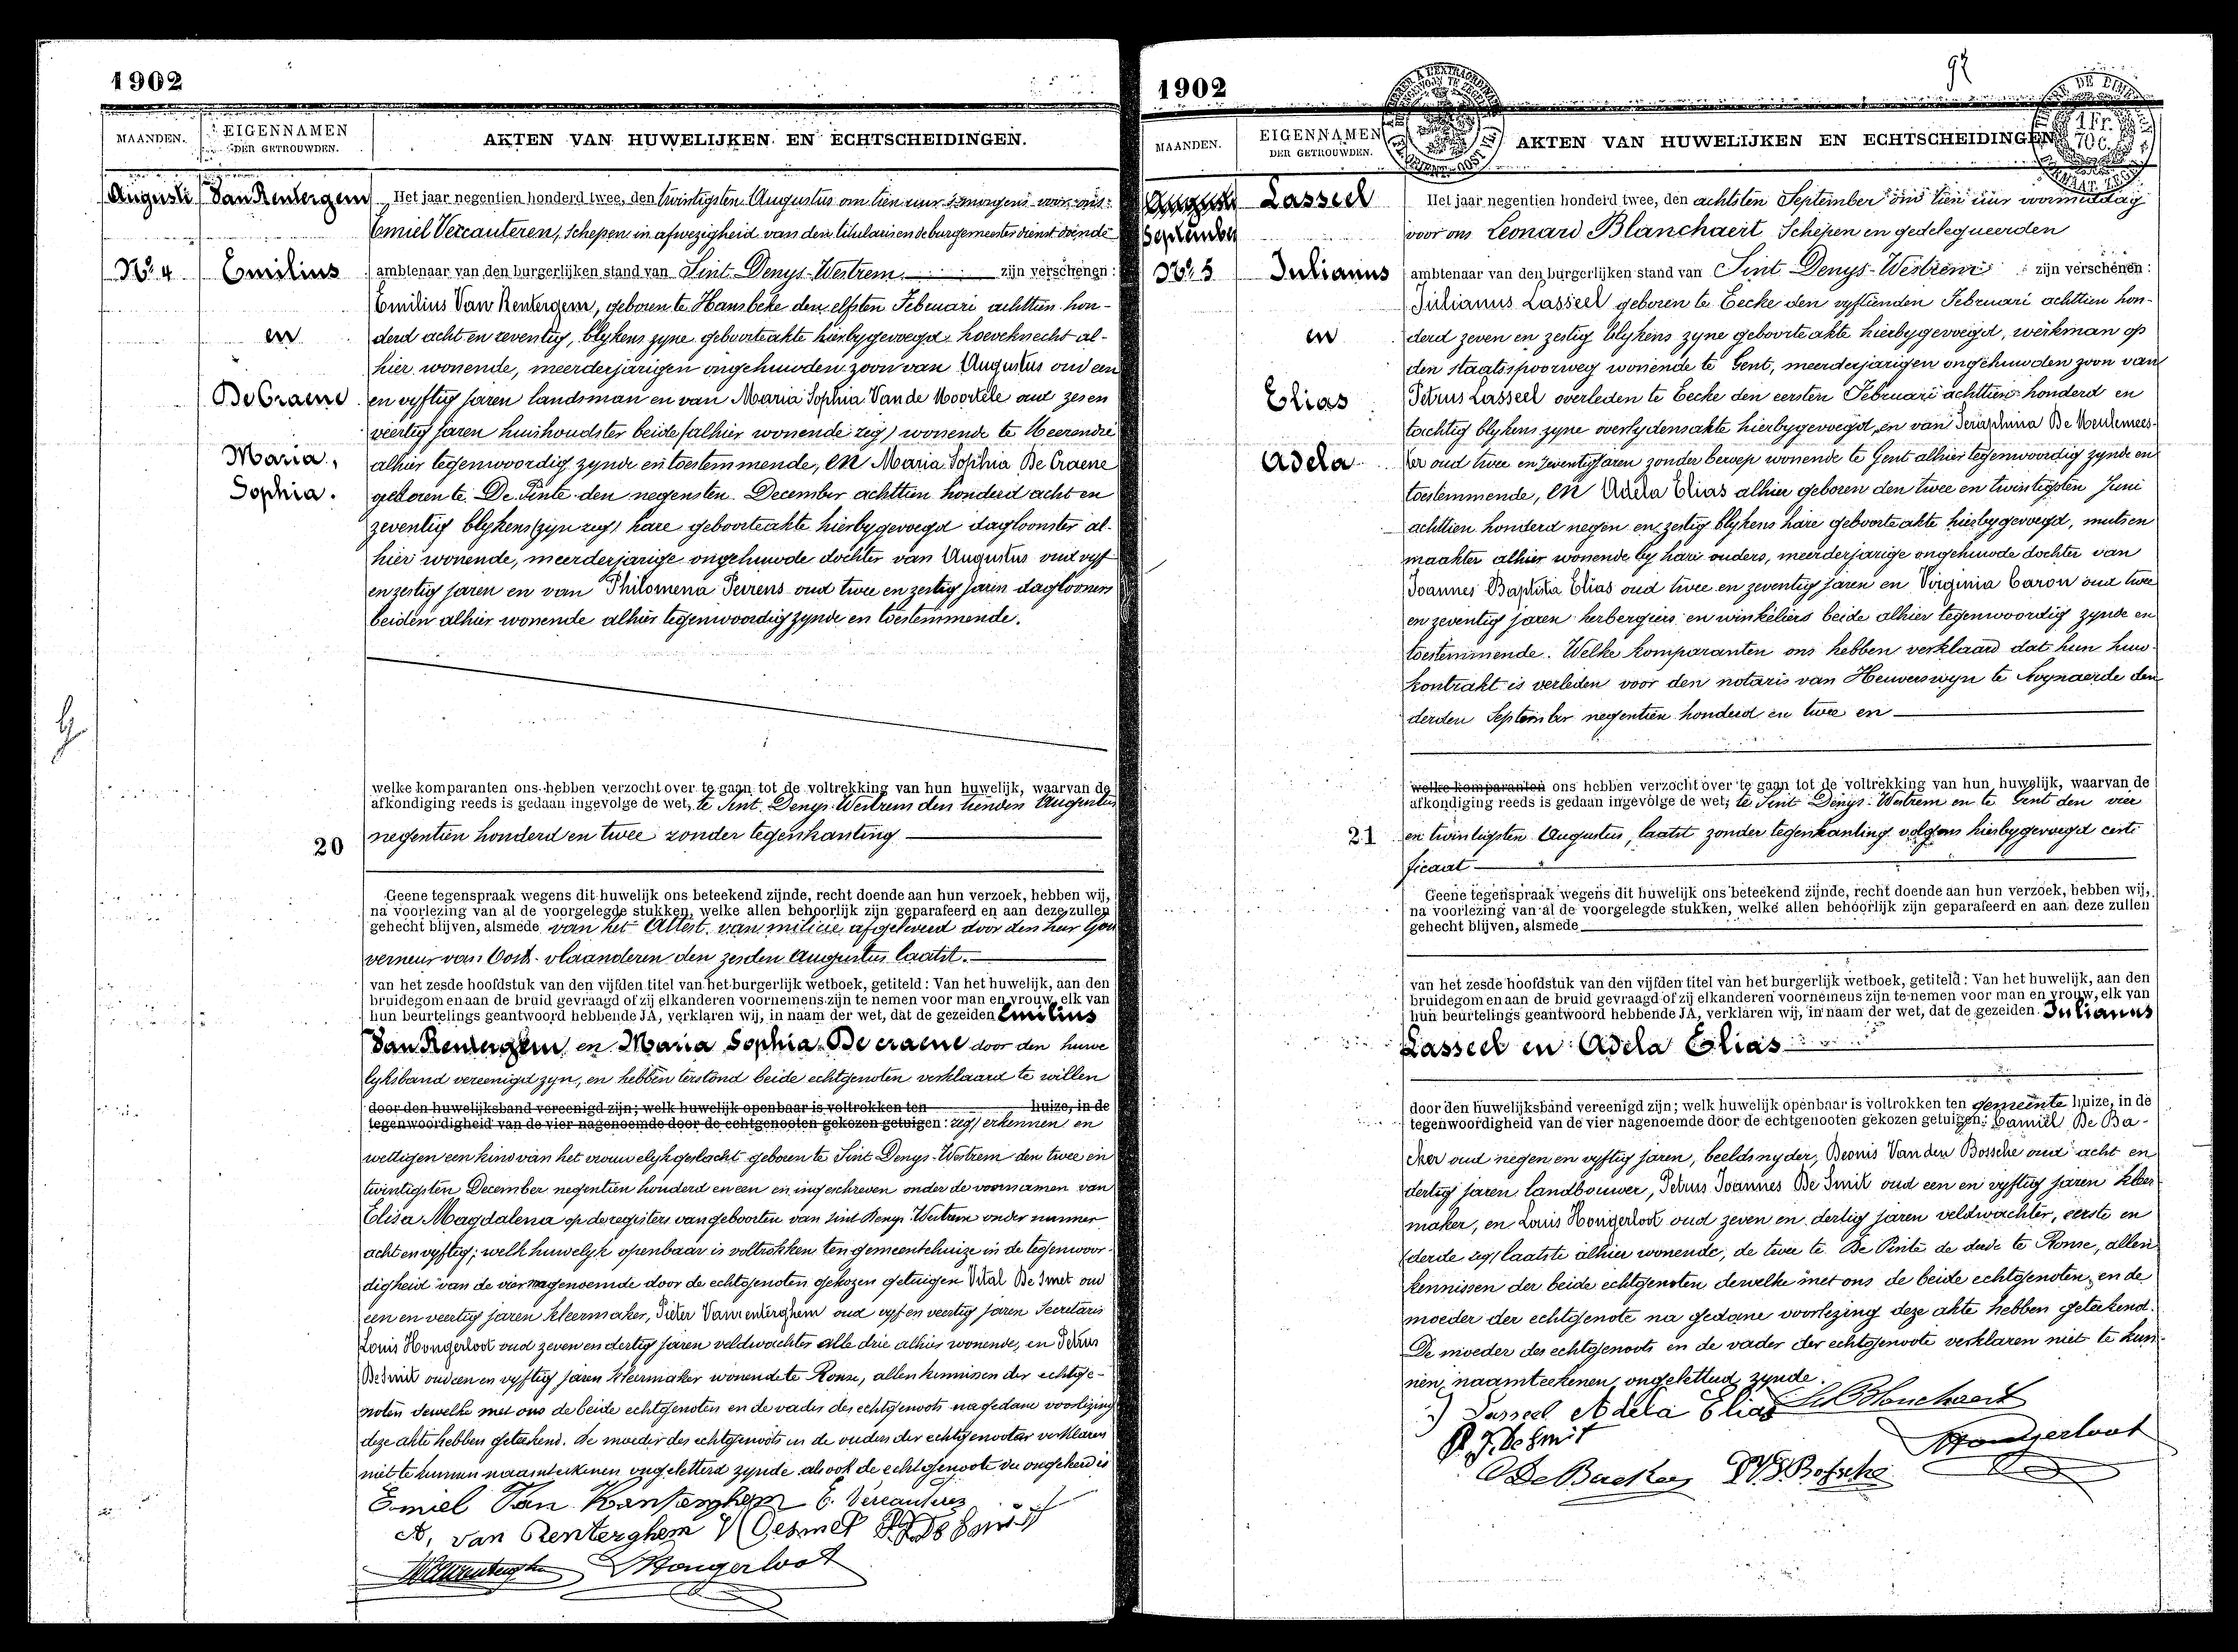 1902
MAANDEN.
EIGENNAMEN
DER GETROUWDEN.
AKTEN VAN HUWELIJKEN EN ECHTSCHEIDINGEN.
Augusti
Van Rentergem
No. 4
Emilius
en
De Craene
Maria,
Sophia.
Het jaar negentien honderd twee, den twintigsten Augustus om tien uur 's morgens voor ons:
Emiel Vercauteren, Schepen in afwezigheid van den titularis en de burgemeester dienst doende
ambtenaar van den burgerlijken stand van Sint Denys-Westrem zijn verschenen:
Emilius Van Rentergem, geboren te Hansbeke den elfsten Februari achttien hon-
derd acht en zeventig, blykens zyne geboorteakte hierbygevoegd hoeveknecht al-
hier wonende, meerderjarigen ongehuwden zoon van Augustus oud een
en vyftig jaren landsman en van Maria Sophia Van de Moortele oud zes en
veertig jaren huishoudster beide (alhier wonende zeg) wonende te Meerendre
alhier tegenwoordig zynde en toestemmende, en Maria Sophia De Craene
geboren te De Pinte den negensten December achttien honderd acht en
zeventig blykens (zyn zeg) hare geboorteakte hierbygevoegd dagloonster al-
hier wonende, meerderjarige ongehuwde dochter van Augustus oud vyf
en zestig jaren en van Philomena Peirens oud twee en zestig jaren daglooners
beiden alhier wonende alhier tegenwoordig zynde en toestemmende.
welke komparanten ons hebben verzocht over te gaan tot de voltrekking van hun huwelijk, waarvan de
afkondiging reeds is gedaan ingevolge de wet, te Sint Denys-Westrem den tienden Augustus
20
negentien honderd en twee zonder tegenkanting
Geene tegenspraak wegens dit huwelijk ons beteekend zijnde, recht doende aan hun verzoek, hebben wij,
na voorlezing van al de voorgelegde stukken, welke allen behoorlijk zijn geparafeerd en aan deze zullen
gehecht blijven, alsmede van het Attest van milicie afgeleverd door den heer Gou
verneur van Oost-vlaanderen den zesden Augustus laatst.
van het zesde hoofdstuk van den vijfden titel van het burgerlijk wetboek, getiteld: Van het huwelijk, aan den
bruidegom en aan de bruid gevraagd of zij elkanderen voornemens zijn te nemen voor man en vrouw, elk van
hun beurtelings geantwoord hebbende JA, verklaren wij, in naam der wet, dat de gezeiden Emilius
Van Rentergem en Maria Sophia De craene door den huwe
lyksband vereenigd zyn, en hebben terstond beide echtgenoten verklaard te willen
door den huwelijksband vereenigd zijn; welk huwelijk openbaar is voltrokken ten huize, in de
tegenwoordigheid van de vier nagenoemde door de echtgenooten gekozen getuigen: zeg) erkennen en
wettigen een kind van het vrouwelyk geslacht geboren te Sint Denys-Westrem den twee en
twintigsten December negentien honderd en een en ingeschreven onder de voornamen van
Elisa Magdalena op de registers van geboorten van Sint Denys Westrem onder nummer
acht en vyftig; welk huwelyk openbaar is voltrokken ten gemeentehuize in de tegenwoor-
digheid van de vier nagenoemde door de echtgenoten gekozen getuigen Vital De Smet oud
een en veertig jaren kleermaker, Pieter Vanrenterghem oud vyf en veertig jaren Secretaris
Louis Hongerloot oud zeven en dertig jaren veldwachter alle drie alhier wonende, en Petrus
De Smit oud een en vyftig jaren kleermaker wonende te Ronse, allen kennissen der echtge-
noten dewelke met ons de beide echtgenoten en de vader des echtgenoots na gedane voorlezing
deze akte hebben geteekend. De moeder des echtgenoots en de ouders der echtgenoote verklaren
niet te kunnen naamteekenen ongeletterd zynde
Emiel Van Renterghem E. Vercauteren
A. van Renterghem V Desmet P. J. De Smit
Hongerloot
1902
92
MAANDEN.
EIGENNAMEN
DER GETROUWDEN.
AKTEN VAN HUWELIJKEN EN ECHTSCHEIDINGEN
August
September
No. 5
Lasseel
Julianus
en
Elias
Adela
Het jaar negentien honderd twee, den achtsten September om tien uur voormiddag
voor ons Leonard Blanchaert Schepen en gedelegueerden
ambtenaar van den burgerlijken stand van Sint Denys-Westrem zijn verschenen:
Julianus Lasseel geboren te Eecke den vyftienden Februari achttien hon-
derd zeven en zestig blykens zyne geboorteakte hierbygevoegd, werkman op
den staatsspoorweg wonende te Gent, meerderjarigen ongehuwden zoon van
Petrus Lasseel overleden te Eecke den eersten Februari achttien honderd en
tachtig blykens zyne overlydensakte hierbygevoegd, en van Seraphina De Meulemees-
ter oud twee en zeventig jaren zonder beroep wonende te Gent alhier tegenwoordig zynde en
toestemmende, en Adela Elias alhier geboren den twee en twintigsten Juni
achttien honderd negen en zestig blykens hare geboorteakte hierbygevoegd, mutsen
maakster alhier wonende by hare ouders, meerderjarige ongehuwde dochter van
Joannes Baptista Elias oud twee en zeventig jaren en Virginia Caron oud twee
en zeventig jaren herbergiers en winkeliers beide alhier tegenwoordig zynde en
toestemmende. Welke komparanten ons hebben verklaard dat hun huw-
kontrakt is verleden voor den notaris van Heuverswyn te Swynaerde den
derden September negentien honderd en twee en
welke komparanten ons hebben verzocht over te gaan tot de voltrekking van hun huwelijk, waarvan de
afkondiging reeds is gedaan ingevolge de wet, te Sint Denys-Westrem en te Gent den vier
21
en twintigsten Augustus, laatst zonder tegenkanting volgens hierbygevoegd certi
ficaat
Geene tegenspraak wegens dit huwelijk ons beteekend zijnde, recht doende aan hun verzoek, hebben wij,
na voorlezing van al de voorgelegde stukken, welke allen behoorlijk zijn geparafeerd en aan deze zullen
gehecht blijven, alsmede
van het zesde hoofdstuk van den vijfden titel van het burgerlijk wetboek, getiteld: Van het huwelijk, aan den
bruidegom en aan de bruid gevraagd of zij elkanderen voornemens zijn te nemen voor man en vrouw, elk van
hun beurtelings geantwoord hebbende JA, verklaren wij, in naam der wet, dat de gezeiden Julianus
Lasseel en Adela Elias
door den huwelijksband vereenigd zijn; welk huwelijk openbaar is voltrokken ten gemeente huize, in de
tegenwoordigheid van de vier nagenoemde door de echtgenooten gekozen getuigen: Camiel De Ba-
cker oud negen en vyftig jaren, beeldsnyder, Van den Bossche oud acht en
dertig jaren landbouwer, Petrus Joannes De Smit oud een en vyftig jaren kleer
maker, en Louis Hongerloot oud zeven en dertig jaren veldwachter, eerste en
(derde zeg) laatste alhier wonende, de twee te De Pinte de derde te Ronse, allen
kennissen der beide echtgenoten dewelke met ons de beide echtgenoten, en de
moeder der echtgenote na gedane voorlezing deze akte hebben geteekend.
De moeder des echtgenoots en de vader der echtgenoote verklaren niet te kun-
nen naamteekenen ongeletterd zynde.
J Lasseel Adela Elias L Blanchaert
P. J. De Smit Hongerloot
C De Backer